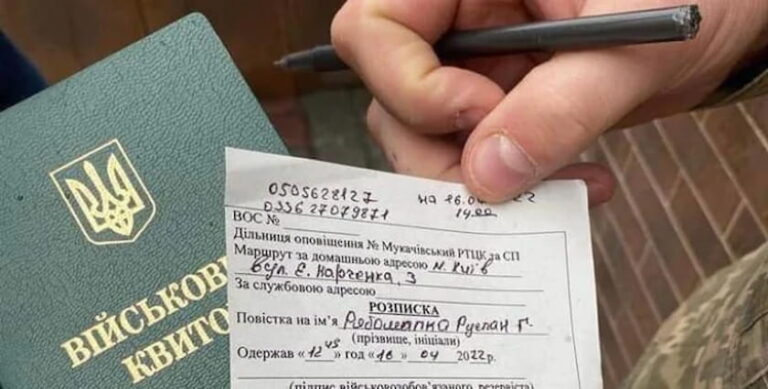 ВІЙСЬКОВ
КВИТО
0505628127 на 16.0
03362707987114.00
ВОС №
Дільниця оповіщення № Мукачівський РТЦК та СП
Маршрут за домашньою адресою м. Київ
вул. Е. Харченка, 3
За службовою адресою
РОЗПИСКА
Повістка на ім'я Руслан Г.
(прізвище, ініціали)
Одержав «12 45» год «16» 04 2022р.
(підпис військовозобов'язаного, резервіста)